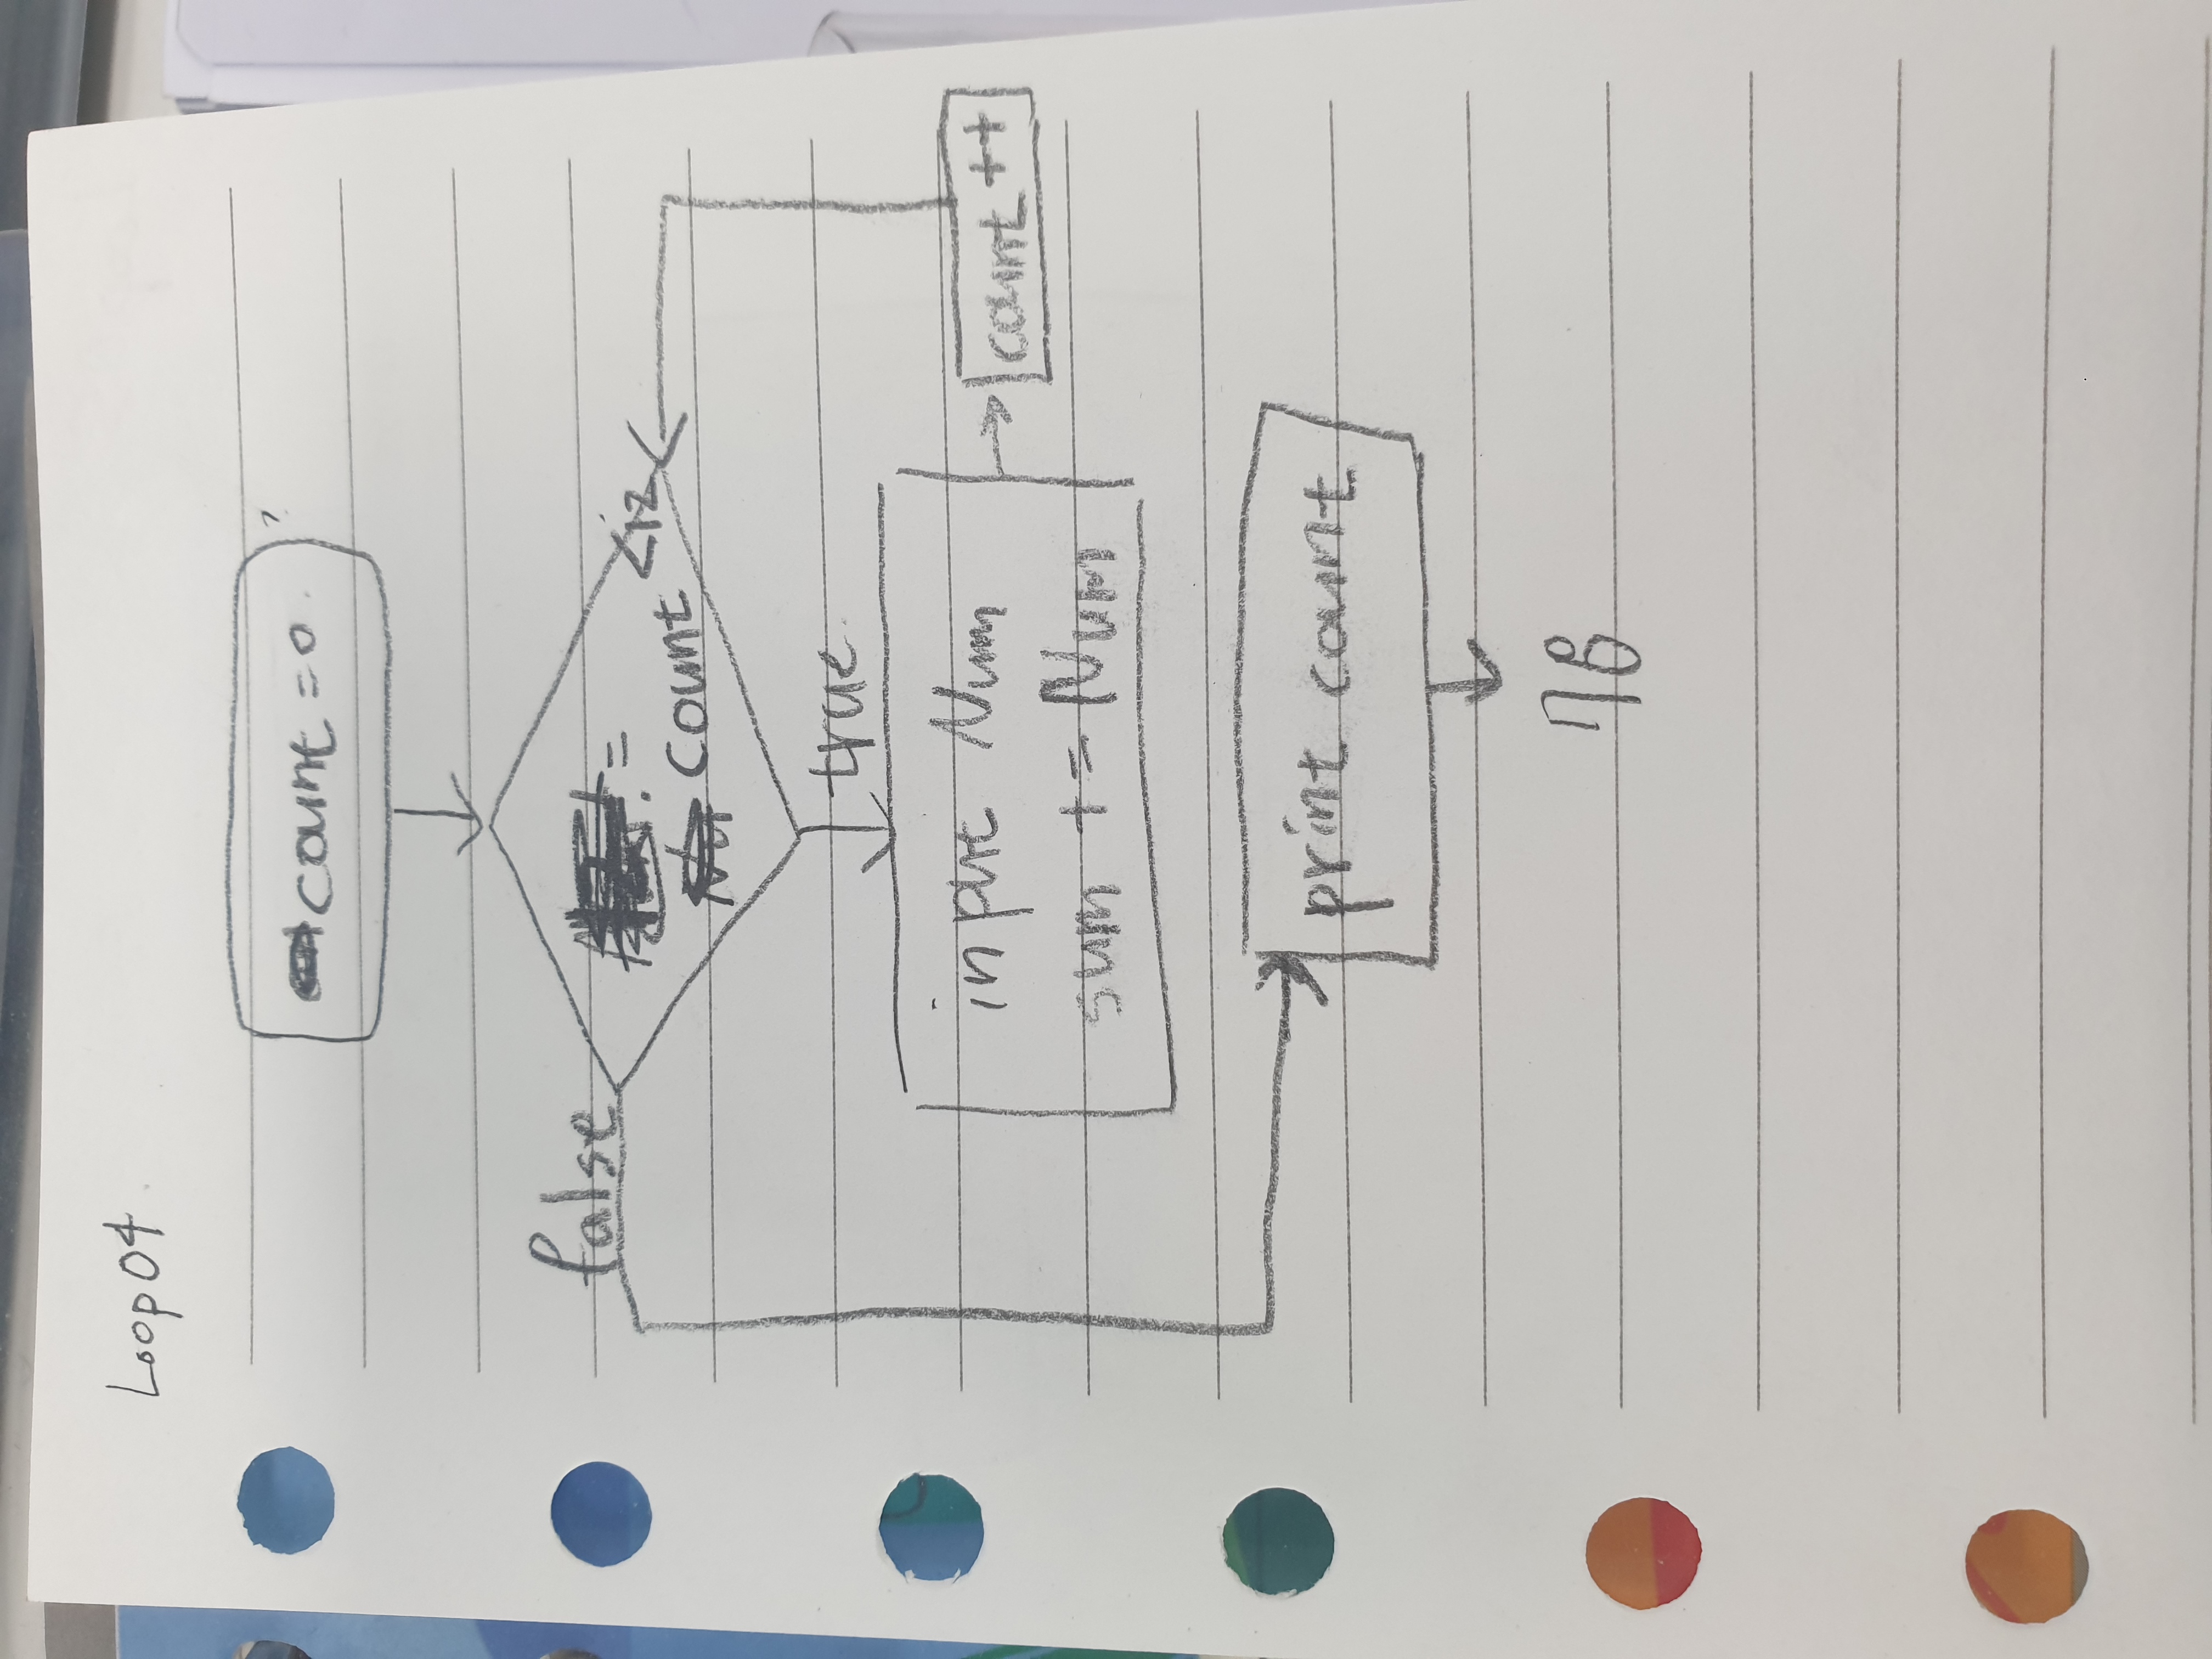 Loop04
count = 0
false
=
count <12
true
input Num
sum += Num
count ++
print count
78